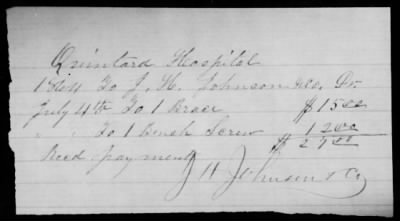 Quintard Hospital
To J. H. Johnson & Co. Dr.
July 4th To 1 Brace $15.00
" " To 1 Bench Screw 12.00
$27.00
Recd payment
J H Johnson & Co